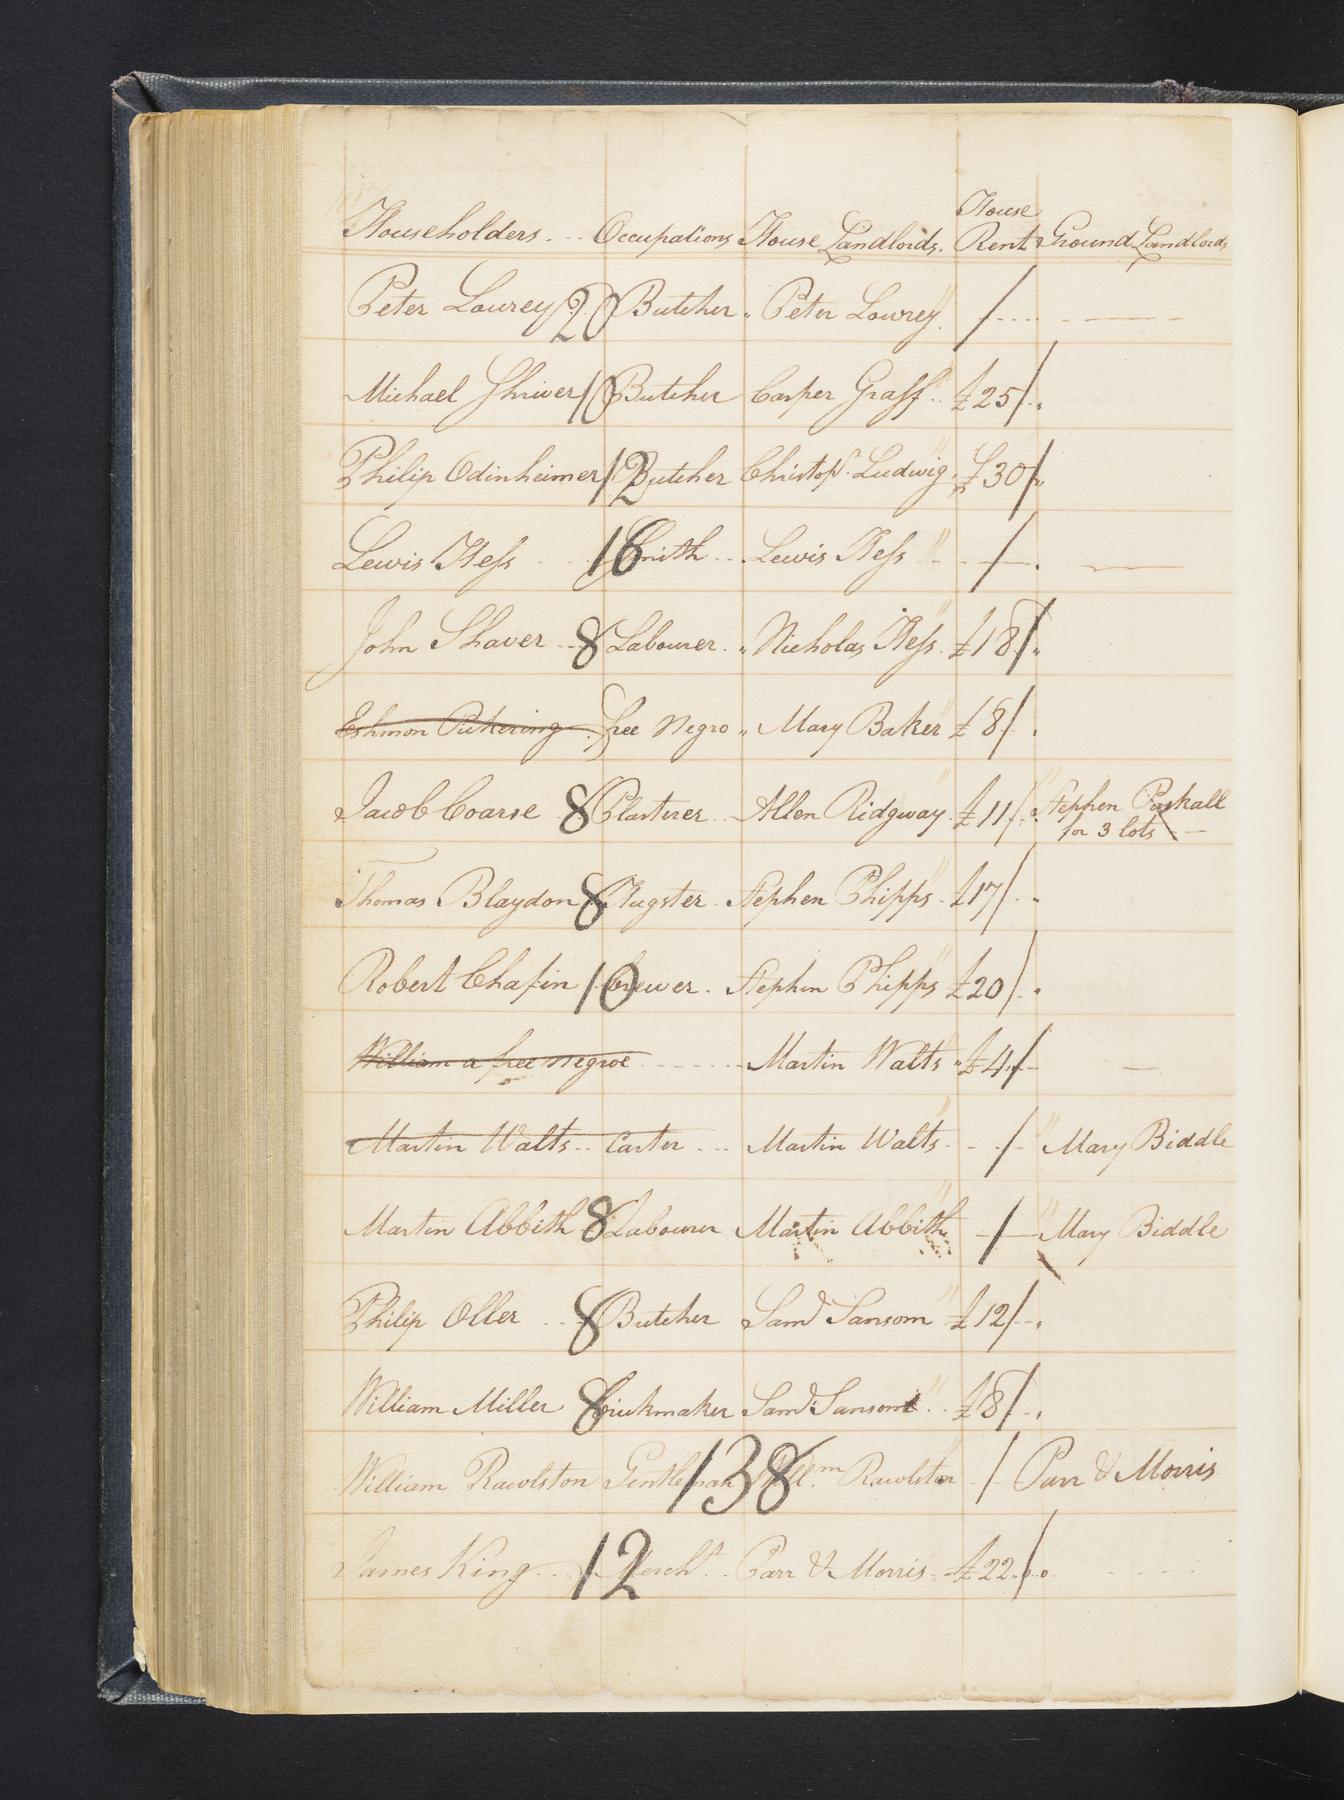 House
Householders. Occupations House Landlords. Rent Ground Landlords
Peter Lowrey 20 Butcher " Peter Lowrey /
Michael Shriver 10 Butcher Casper Graff £25/
Philip Odinheimer 12 Butcher Christop.r Ludwig £30/
Lewis Hess 16 Smith Lewis Hess /
John Shaver 8 Labourer " Nicholas Hess £18/
Eshmon Pickering free Negro " Mary Baker £8/
Jacob Coarse 8 Plasterer Allen Ridgway £11/ Stephen Paskall
for 3 lots
Thomas Blaydon 8 Stephen Phipps £17/
Robert Chafin 10 brewer Stephen Phipps £20/
William a free negroe Martin Walts £4/
Martin Walts Carter Martin Walts / Mary Biddle
Martin Abbith 8 Labourer Martin Abbith / Mary Biddle
Philip Oller 8 Butcher Saml Sansom £12/
William Miller 8 brickmaker Saml Sansom £8/
William Rawlston Gentleman 138 Willm Rawlston / Parr & Morris
James King 12 Mercht Parr & Morris £22/